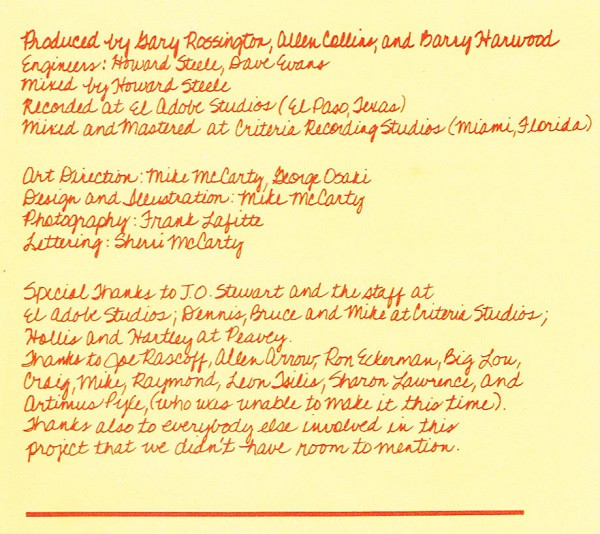 Produced by Gary Rossington, Allen Collins, and Barry Harwood
Engineers: Howard Steele, Dave Evans
Mixed by Howard Steele
Recorded at El Adobe Studios (El Paso, Texas)
Mixed and Mastered at Criteria Recording Studios (Miami, Florida)
Art Direction: Mike McCarty, George Osaki
Design and Illustration: Mike McCarty
Photography: Frank Lafitte
Lettering: Sherri McCarty
Special Thanks to J.O. Stewart and the staff at
El Adobe Studios; Dennis, Bruce and Mike at Criteria Studios;
Hollis and Hartley at Peavey.
Thanks to Joe Rascoff, Allen Arrow, Ron Eckerman, Big Lou,
Craig, Mike, Raymond, Leon Tsilis, Sharon Lawrence, and
Artimus Pyle, (who was unable to make it this time).
Thanks also to everybody else involved in this
project that we didn't have room to mention.